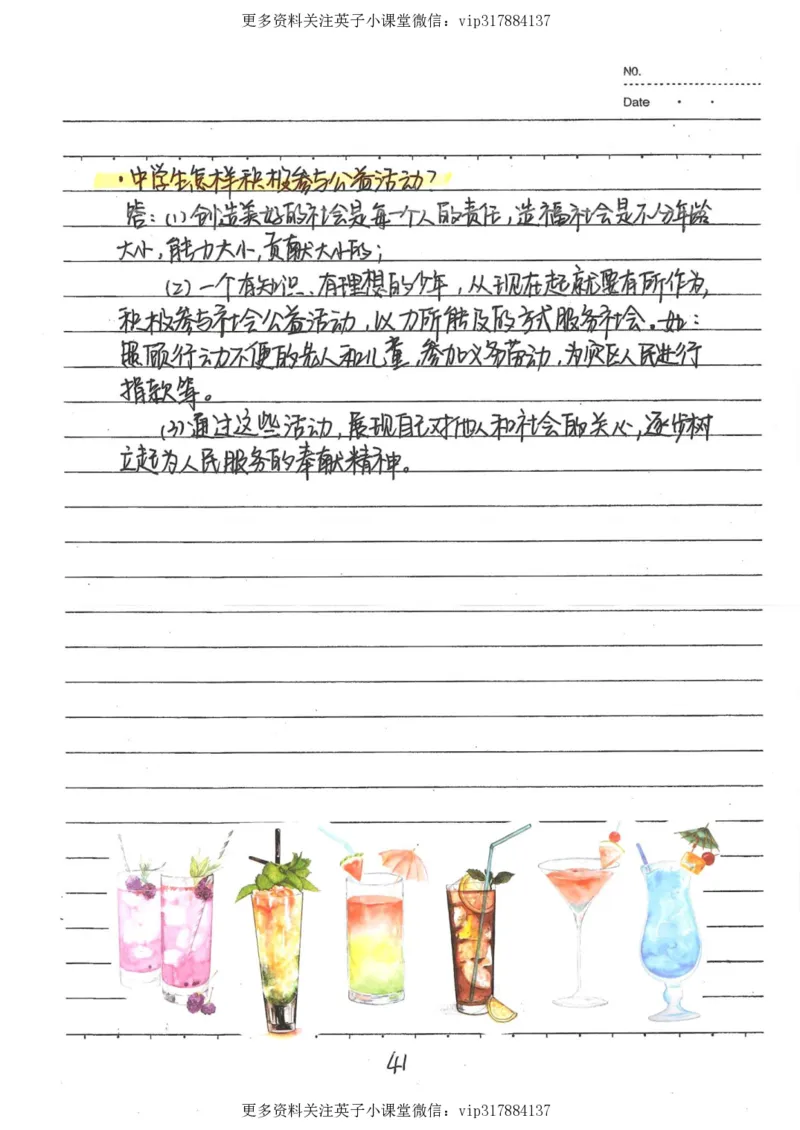 更多资料关注英子小课堂微信：vip317884137
NO.
Date
·中学生怎样积极参与公益活动？
答：(1)创造美好的社会是每一个人的责任，造福社会是不分年龄
大小，能力大小，贡献大小的；
(2)一个有知识、有理想的少年，从现在起就要有所作为，
积极参与社会公益活动，以力所能及的方式服务社会。如：
照顾行动不便的老人和儿童，参加义务劳动，为灾区人民进行
捐款等。
(3)通过这些活动，展现自己对他人和社会的关心，逐步树
立起为人民服务的奉献精神。
41
更多资料关注英子小课堂微信：vip317884137